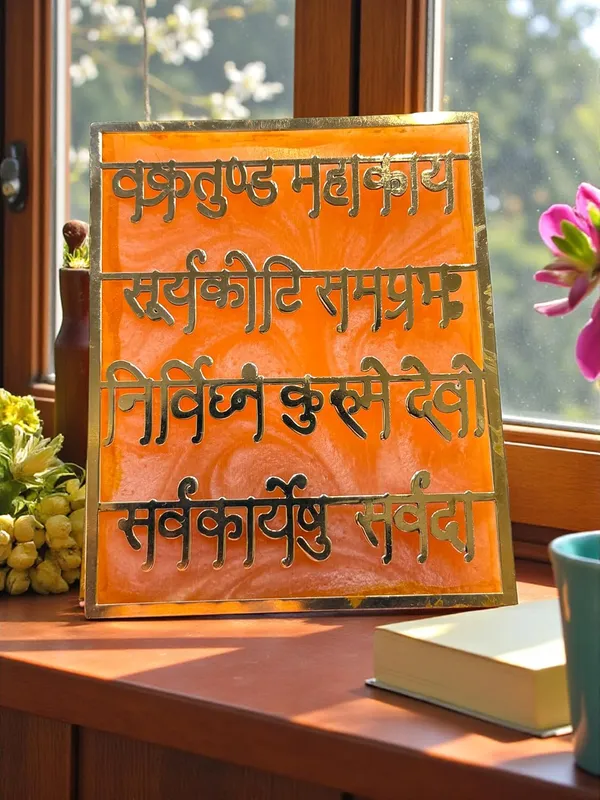 वक्रतुण्ड महाकाय
सूर्यकोटि समप्रभः
निर्विघ्नं कुरुमे देवो
सर्वकार्येषु सर्वदा